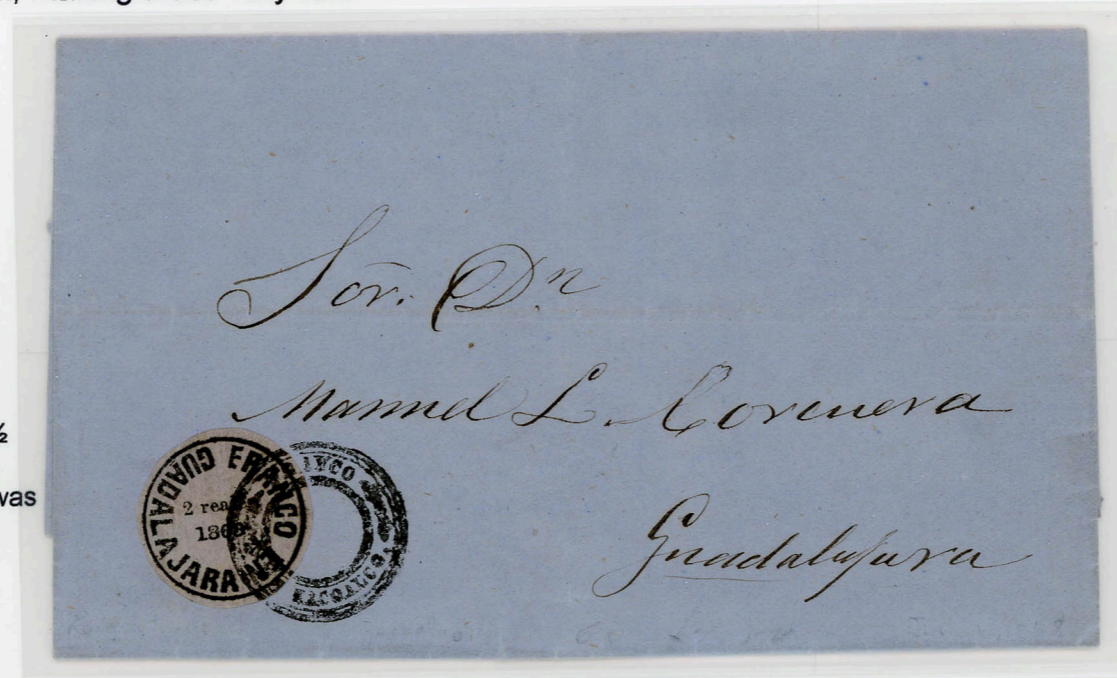 ½
was
Sor. Dn
Manuel L. Corcuera
Guadalajara
FRANCO EN GUADALAJARA
2 rea
186
FRANCO